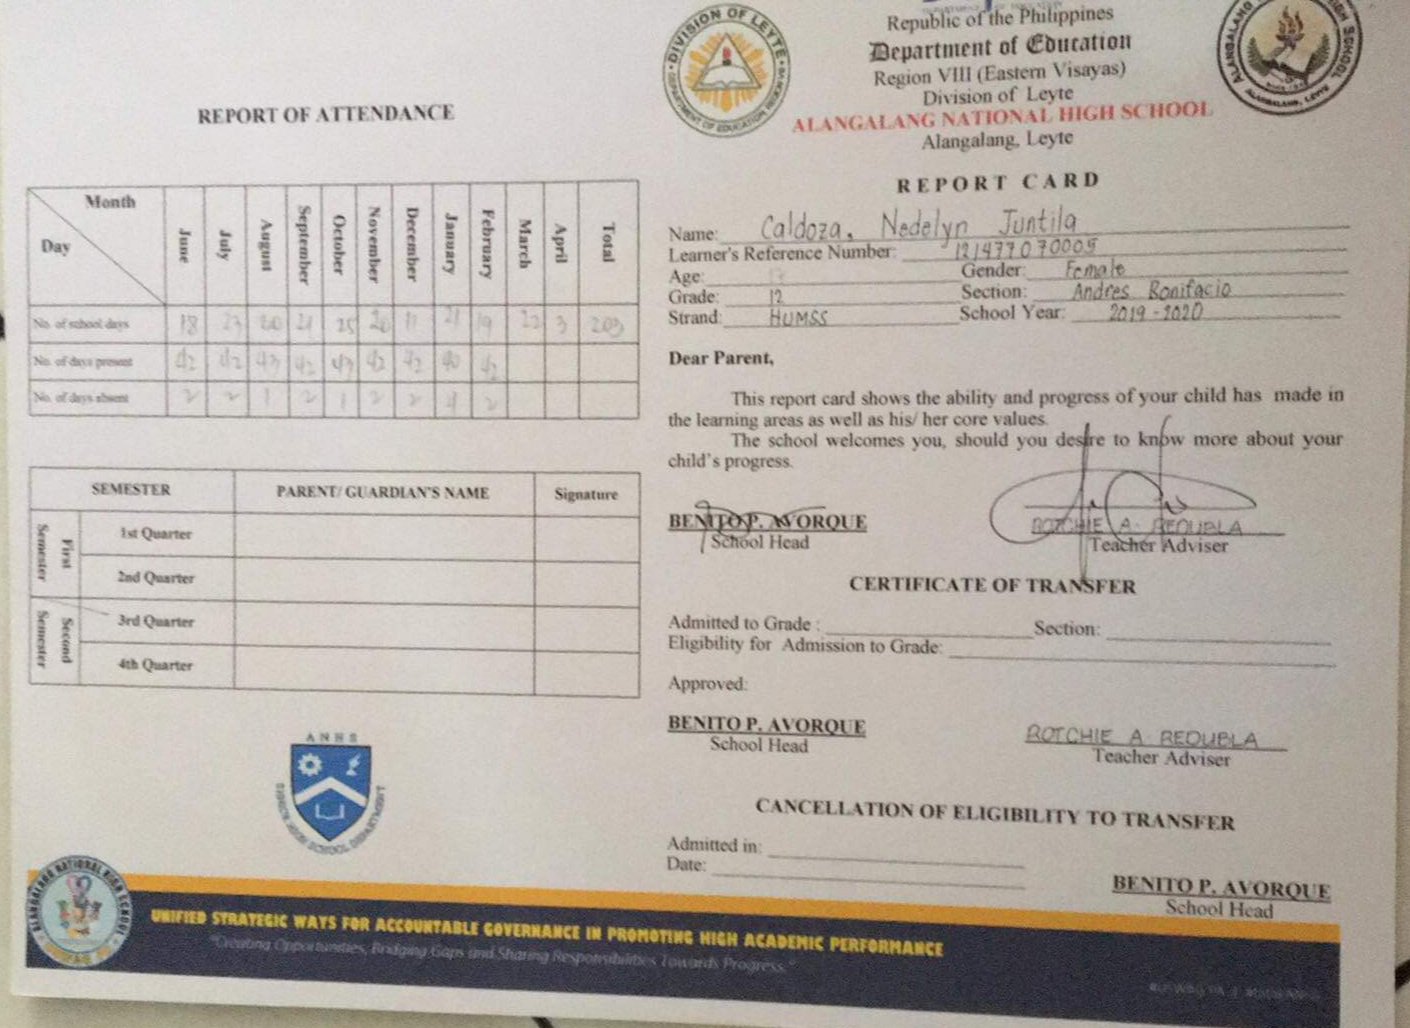 REPORT OF ATTENDANCE
Month
Day
June
July
August
September
October
November
December
January
February
March
April
Total
No. of school days 18 23 20 21 25 20 11 21 19 22 3 203
No. of days present 42 42 43 42 43 42 42 40 42
No. of days absent 2 2 1 2 1 2 2 4 2
SEMESTER PARENT/ GUARDIAN'S NAME Signature
First Semester
1st Quarter
2nd Quarter
Second Semester
3rd Quarter
4th Quarter
ANHS
SENIOR HIGH SCHOOL DEPARTMENT
DIVISION OF LEYTE
Republic of the Philippines
Department of Education
Region VIII (Eastern Visayas)
Division of Leyte
ALANGALANG NATIONAL HIGH SCHOOL
Alangalang, Leyte
REPORT CARD
Name: Caldoza, Nedelyn Juntila
Learner's Reference Number: 121477070005
Age: Gender: Female
Grade: 12 Section: Andres Bonifacio
Strand: HUMSS School Year: 2019-2020
Dear Parent,
This report card shows the ability and progress of your child has made in
the learning areas as well as his/ her core values.
The school welcomes you, should you desire to know more about your
child's progress.
BENITO P. AVORQUE
School Head
ROTCHIE A. REDUBLA
Teacher Adviser
CERTIFICATE OF TRANSFER
Admitted to Grade : Section:
Eligibility for Admission to Grade:
Approved:
BENITO P. AVORQUE
School Head
ROTCHIE A. REDUBLA
Teacher Adviser
CANCELLATION OF ELIGIBILITY TO TRANSFER
Admitted in:
Date:
BENITO P. AVORQUE
School Head
ALANGALANG NATIONAL HIGH SCHOOL
UNIFIED STRATEGIC WAYS FOR ACCOUNTABLE GOVERNANCE IN PROMOTING HIGH ACADEMIC PERFORMANCE
"Creating Opportunities, Bridging Gaps and Sharing Responsibilities Towards Progress."